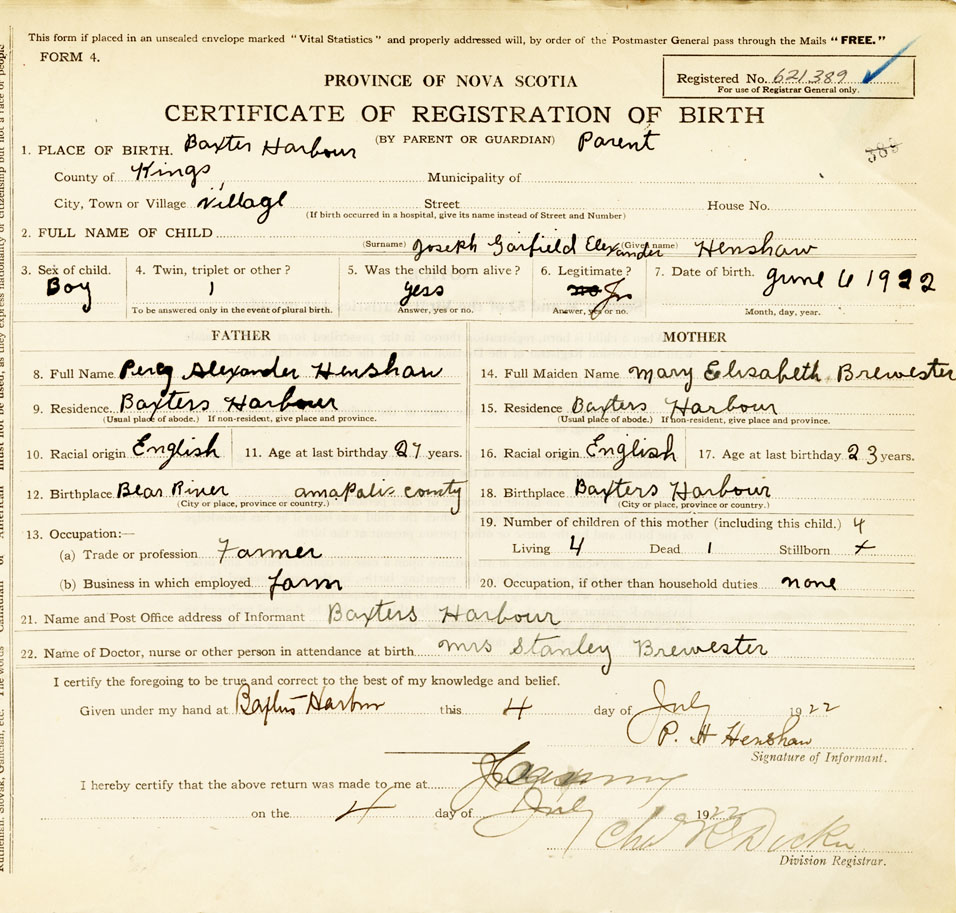 This form if placed in an unsealed envelope marked "Vital Statistics" and properly addressed will, by order of the Postmaster General pass through the Mails "FREE."
FORM 4.
PROVINCE OF NOVA SCOTIA
Registered No. 621389
For use of Registrar General only.
CERTIFICATE OF REGISTRATION OF BIRTH
(BY PARENT OR GUARDIAN) Parent
389
1. PLACE OF BIRTH. Baxter Harbour
County of Kings Municipality of
City, Town or Village Village Street House No.
(If birth occurred in a hospital, give its name instead of Street and Number)
2. FULL NAME OF CHILD
(Surname) Joseph Garfield Elexander (Given name) Henshaw
3. Sex of child. 4. Twin, triplet or other? 5. Was the child born alive? 6. Legitimate? 7. Date of birth. June 6 1922
Boy 1 yess no
To be answered only in the event of plural birth. Answer, yes or no. Answer, yes or no. Month, day, year.
FATHER MOTHER
8. Full Name Percy Alexander Henshaw 14. Full Maiden Name Mary Elisabeth Brewester
9. Residence Baxters Harbour 15. Residence Baxters Harbour
(Usual place of abode.) If non-resident, give place and province. (Usual place of abode.) If non-resident, give place and province.
10. Racial origin English 11. Age at last birthday 27 years. 16. Racial origin English 17. Age at last birthday 23 years.
12. Birthplace Bear River anapalis county 18. Birthplace Baxters Harbour
(City or place, province or country.) (City or place, province or country.)
13. Occupation:— 19. Number of children of this mother (including this child.) 4
(a) Trade or profession Farmer Living 4 Dead 1 Stillborn x
(b) Business in which employed farm 20. Occupation, if other than household duties none
21. Name and Post Office address of Informant Baxters Harbour
22. Name of Doctor, nurse or other person in attendance at birth. mrs Stanley Brewester
I certify the foregoing to be true and correct to the best of my knowledge and belief.
Given under my hand at Baxters Harbour this 4 day of July 1922
P. H Henshaw
Signature of Informant.
I hereby certify that the above return was made to me at
on the 4 day of July 1922
Division Registrar.